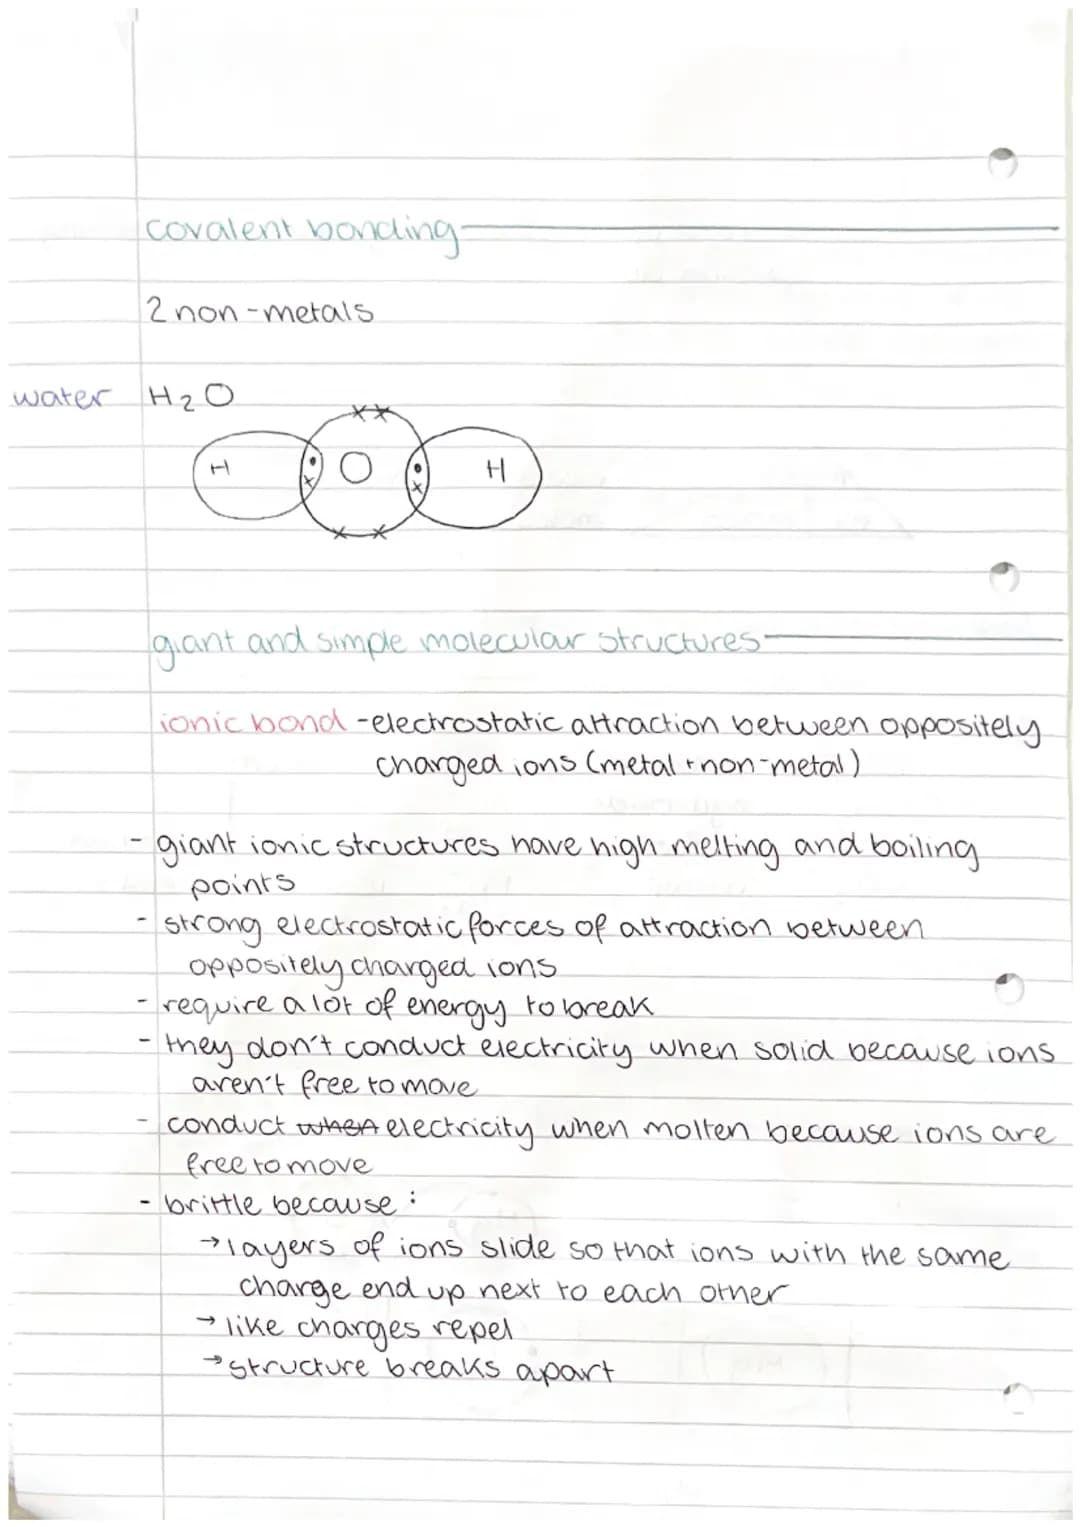 covalent bonding
2 non-metals
water H₂O
xx
H • x O • x H
x x
giant and simple molecular structures
ionic bond - electrostatic attraction between oppositely
charged ions (metal + non-metal)
- giant ionic structures have high melting and boiling
points
- strong electrostatic forces of attraction between
oppositely charged ions
- require a lot of energy to break
- they don't conduct electricity when solid because ions
aren't free to move
- conduct when electricity when molten because ions are
free to move
- brittle because :
→ layers of ions slide so that ions with the same
charge end up next to each other
→ like charges repel
→ structure breaks apart